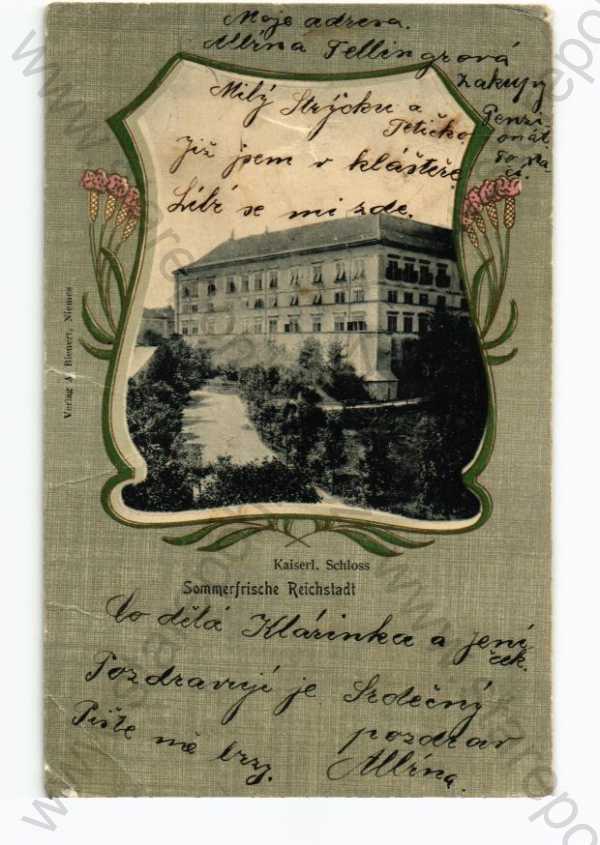 Moje adresa.
Albína Tellingrová
Zakupy
Penzi
onát.
Milý Strýčku a
Tetičko
Již jsem v klášteře
Líbí se mi zde.
Verlag A. Bienert, Niemes
Kaiserl. Schloss
Sommerfrische Reichstadt
Co dělá Klárinka a jení
ček.
Pozdravuji je Srdečný
pozdrav
Pište mě brzy.
Albína.